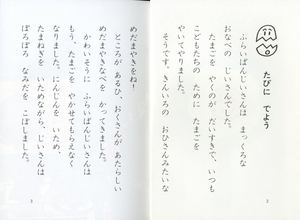 たびに でよう
ふらいぱんじいさんは まっくろな
おなべの じいさんでした。
たまごを やくのが だいすきで、いつも
こどもたちの ために たまごを
やいてやりました。
そうです。きんいろの おひさんみたいな
2
めだまやきをね!
ところが あるひ、おくさんが あたらしい
めだまやきなべを かってきました。
かわいそうに ふらいぱんじいさんは
もう、たまごを やかせてもらえなく
なりました。にんじんを いため、
たまねぎを いためながら、じいさんは
ぽろぽろ なみだを こぼしました。
3